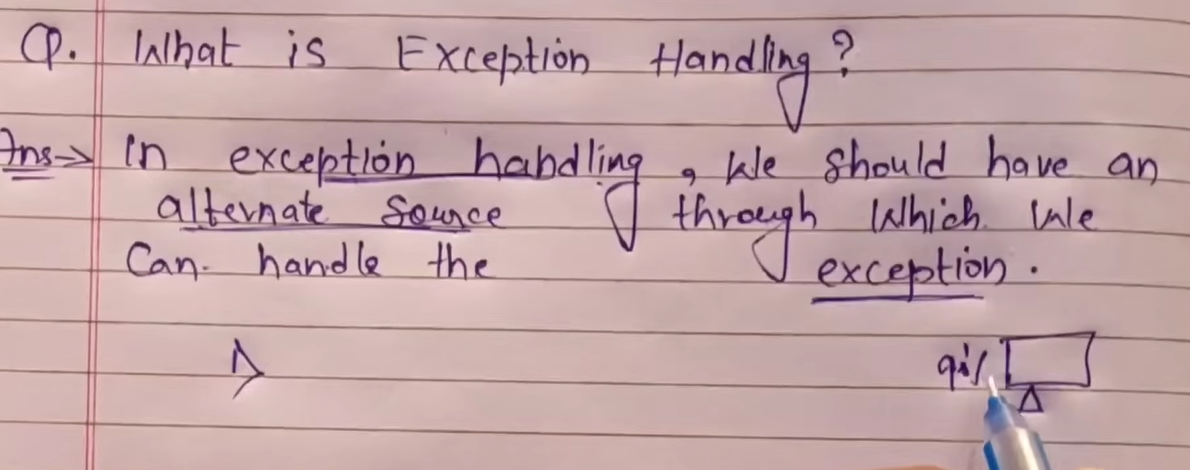 Q. What is Exception Handling?
Ans→ In exception habdling, we should have an
alternate source through which we
Can. handle the exception.